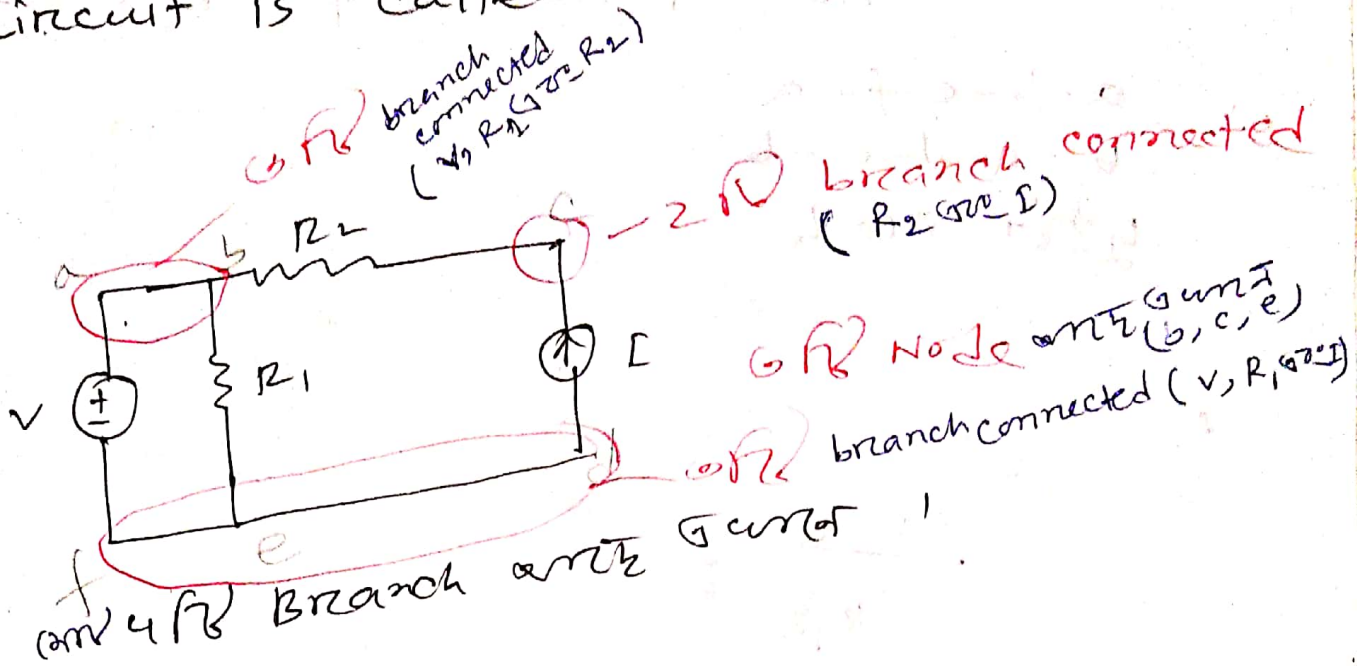 Circuit is
৩টি branch
connected
(V, R₁ এবং R₂)
a
b
R₂
c
2টি branch connected
(R₂ এবং I)
V
+
-
R₁
I
৩টি Node আছে এখানে
(b, c, e)
৩টি branch connected (V, R₁ এবং I)
f
e
মোট ৪টি Branch আছে এখানে।